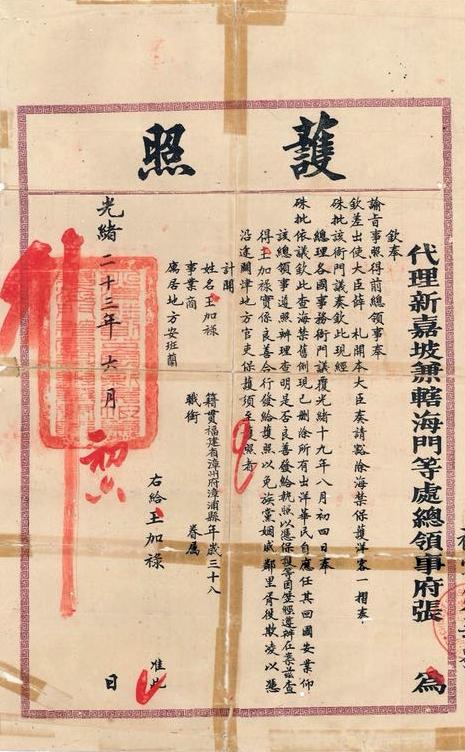 護照
代理新嘉坡兼轄海門等處總領事府張 為
欽奉
諭旨事照得前總領事奉
欽差出使大臣薛 札開本大臣奏請豁除海禁保護洋客一摺奉
硃批該衙門議奏欽此現經
總理各國事務衙門議覆光緒十九年八月初四日奉
硃批依議欽此查海禁舊例現已刪除所有出洋華民自應任其回國安業仰
該總領事遵照辨理查明是否良善發給執照以憑保護等因
得王加祿實係良善合行發給護照以免族黨姻戚鄰里胥役欺凌以憑
沿途關津地方官吏保護須至護照者
計開
姓名王加祿 籍貫福建省漳州府漳浦縣年歲三十八
事業商 職銜 眷屬
寓居地方安班蘭
右給王加祿
准此
光緒二十三年六月初六日